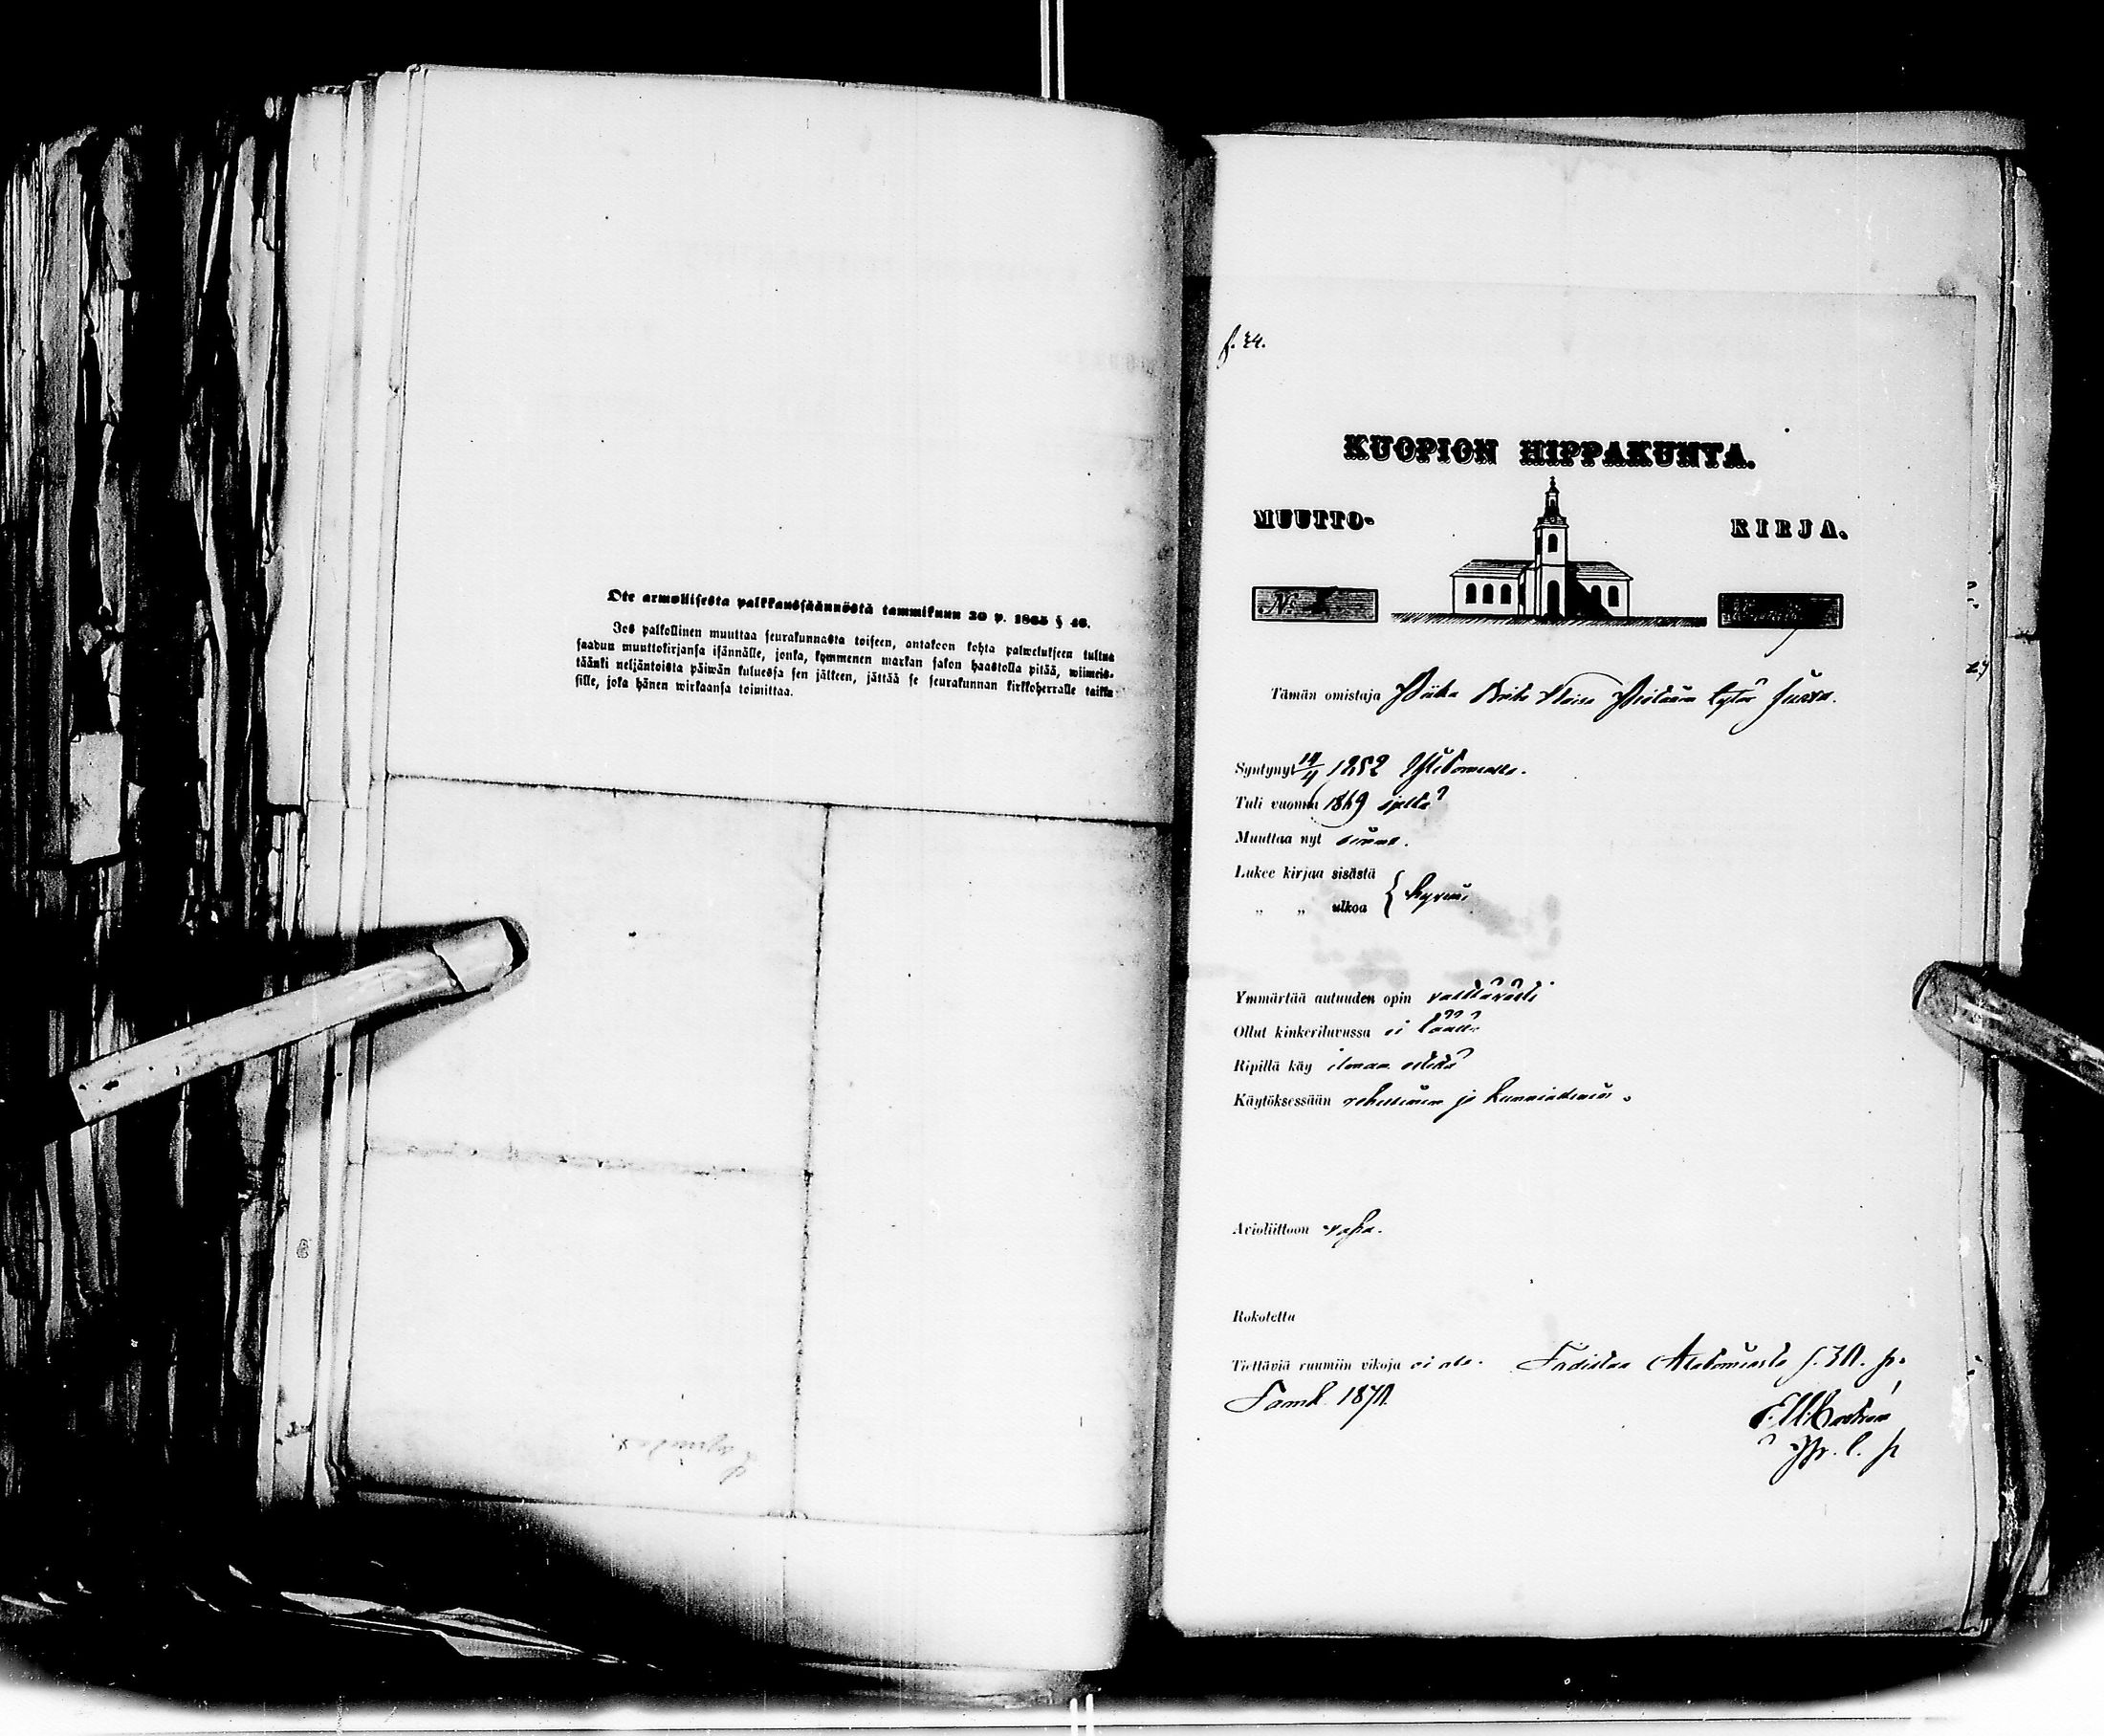 Ote armollisesta palkkaussäännöstä tammikuun 30 p. 1865 § 46.
Jos palkollinen muuttaa seurakunnasta toiseen, antakoon kohta palwelukseen tultua
saadun muuttokirjansa isännälle, jonka, kymmenen markan sakon haastolla pitää, wiimeis-
täänki neljäntoista päiwän kuluessa sen jälkeen, jättää se seurakunnan kirkkoherralle taikka
sille, joka hänen wirkaansa toimittaa.
f. 34.
KUOPION HIPPAKUNTA.
MUUTTO- KIRJA.
No
Tämän omistaja Piika Brita tytär
Syntynyt 14/4 1852 Ylitorniolla.
Tuli vuonna 1869 sieltä
Muuttaa nyt sinne.
Lukee kirjaa sisästä
„ „ ulkoa { hyvin
Ymmärtää autuuden opin välttävästi
Ollut kinkeriluvussa ei täällä
Ripillä käy ilman estettä
Käytöksessään rehellinen ja kunniallinen.
Avioliittoon vapa.
Rokotettu
Tiettäviä ruumiin vikoja ei ole. Todistaa Alatorniosta p.
Tamk. 1870.